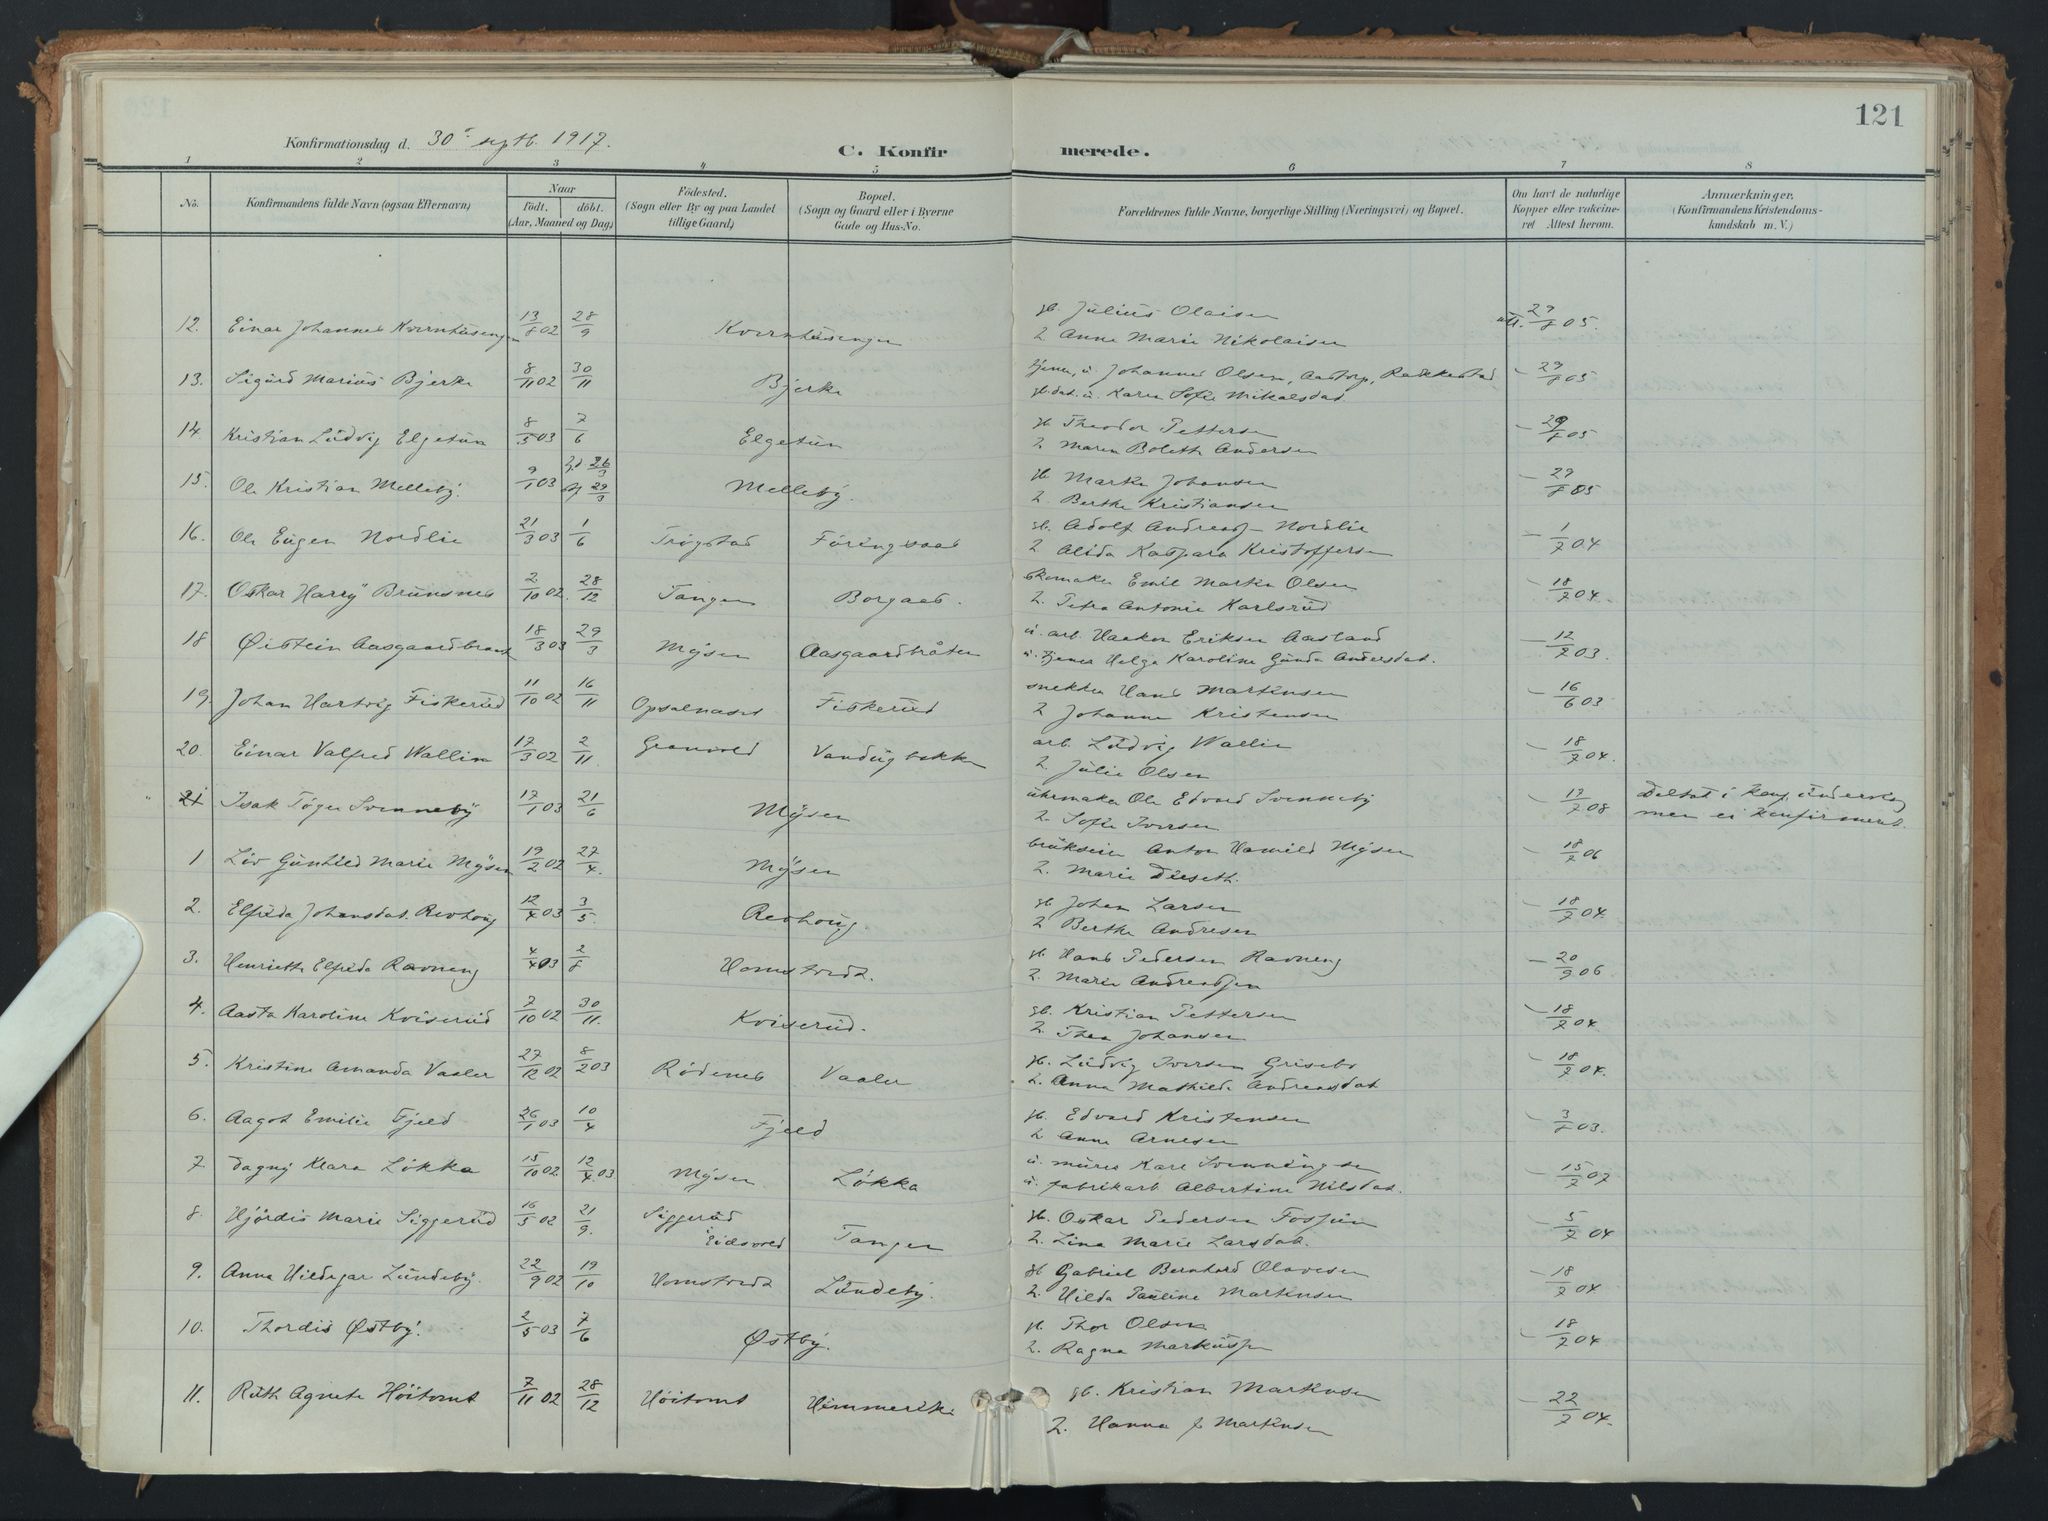 121
Konfirmationsdag d. 30 septb. 1917.
C. Konfirmerede.
1 2 3 4 5 6 7 8
No. Konfirmandens fulde Navn (ogsaa Efternavn) Naar født. døbt. (Aar, Maaned og Dag) Födested. (Sogn eller By og paa Landet tillige Gaard) Bopæl. (Sogn og Gaard eller i Byerne Gade og Hus-No. Forældrenes fulde Navne, borgerlige Stilling (Næringsvei) og Bopæl. Om havt de naturlige Kopper eller vakcineret Attest herom. Anmærkninger. (Konfirmandens Kristendomskundskab m. V.)
12. Einar Johannes Kvernhusengen 13/8 02 28/9 Kvernhusengen gb. Julius Olaisen att. 29/8 05.
2 Anne Marie Nikolaisen
13. Sigurd Marius Bjerke 8/11 02 30/11 Bjerke tjener, u. Johannes Olsen, Aastorp, Rakkestad – 29/8 05
gb.dat. u. Karen Sofie Mikalsdat.
14. Kristian Ludvig Elgetun 8/5 03 7/6 Elgetun gb Theodor Pettersen – 29/8 05
2. Maren Boleth Andersen
15. Ole Kristian Melleby. 9/1 03 26/3 29/3 Melleby. gb. Martin Johansen – 29/8 05
2. Berthe Kristiansen
16. Ole Eugen Nordlie 21/3 03 1/6 Trøgstad Föringsaas gb. Adolf Andreassen Nordlie – 1/7 04
2 Alida Kaspara Kristoffersen
17. Oskar Harry Brunsnes 2/10 02. 28/12 Tangen Borgaas. skomaker Emil Martin Olsen – 18/7 04
2. Petra Antonie Karlsrud
18 Øistein Aasgaardbraat 18/3 03 29/3 Mysen Aasgaardbråten u. arb. Haakon Eriksen Aasland – 12/7 03.
u. tjener Helga Karoline Gunda Andersdat.
19. Johan Hartvig Fiskerud 11/10 02 16/11 Opsalnaset Fiskerud snekker Hans Martinsen – 16/6 03
2 Johanne Kristensen
20. Einar Valfred Wallin 17/3 02 2/11. Granvold Vandugbakken arb. Ludvig Wallin – 18/7 04.
2. Julie Olsen
21 Isak Töger Svenneby 17/1 03 21/6 Mysen uhrmaker Ole Edvard Svenneby – 17/7 08 Deltat i konf. underviSng
2. Sofie Iversen men ei konfirmert.
1 Liv Gunhild Marie Mysen 19/2 02 27/4. Mysen brukseier Anton Hamild Mysen – 18/7 06
2. Marie Diseth.
2. Elfrida Johansdat. Revhoug 12/4 03 3/5. Revhoug. gb Johan Larsen – 18/7 04.
2 Berthe Andresen
3. Henriette Elfrida Ravneng 4/4 03 2/8 Homstvedt. gb. Hans Pedersen Ravneng – 20/9 06
2. Marie Andreassen
4. Aasta Karoline Kviserud 7/10 02 30/11. Kviserud. gb. Kristian Pettersen – 18/7 04.
2. Thea Johansen
5. Kristine Amanda Vaaler 27/12 02 8/2 03 Rødenes Vaaler gb. Ludvig Iversen Grisebo – 18/7 04.
2. Anna Mathilde Andreasdat
6. Aagot Emilie Fjeld 26/1 03 10/4 Fjeld gb. Edvard Kristensen – 3/8 03.
2 Anne Arnesen
7. Dagny Klara Løkka 15/10 02 12/4. 03 Mysen Løkka u. murer Karl Svenningsen – 15/7 07
u. fabrikarb. Albertine Nilsdat.
8. Hjördis Marie Siggerud 16/5 02 21/9. Siggerud i Eidsvold Tangen gb. Oskar Pedersen Fossjum – 5/7 04
2. Lina Marie Larsdat.
9. Anna Hildegar Lundeby. 22/9 02 19/10 Homstvedt Lundeby. gb Gabriel Bernhard Olavesen – 18/7 04
2. Hilda Pauline Martinsen
10. Thordis Østby. 2/5 03 7/6 Østby. gb. Thor Olsen – 18/7 04
2. Ragna Markussen
11. Ruth Agnete Höitomt 7/11 02 28/12 Höitomt Himmerike gb. Kristian Martinsen – 22/7 04.
2. Hanna J Martinsen